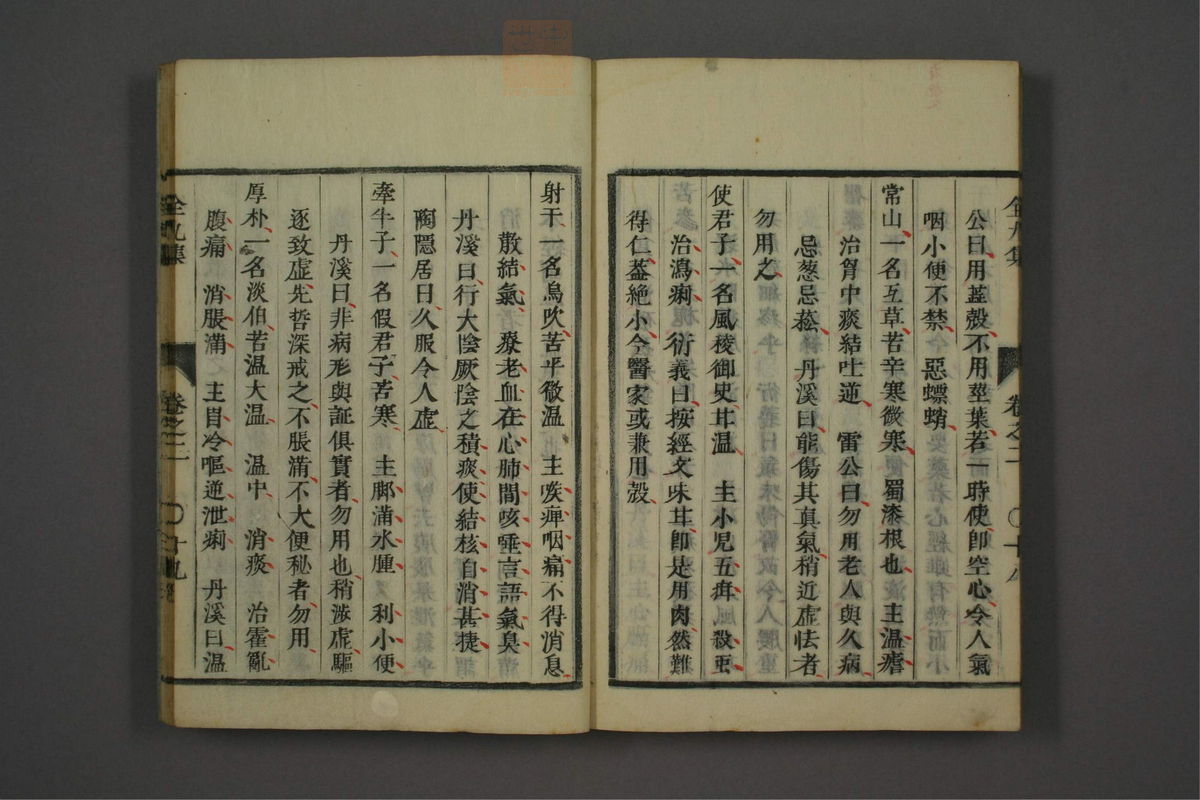 公曰用蓋殼不用莖葉若一時使卽空心令人氣
咽小便不禁　惡螵蛸
常山一名互草苦辛寒微寒　蜀漆根也　主温瘧
治胷中痰結吐逆　雷公曰勿用老人與久病
忌葱忌菘　丹溪曰能傷其眞氣稍近虛怯者
勿用之
使君子一名風稜御史甘温　主小児五疳　殺蟲
治瀉痢　衍義曰按經文味甘卽是用肉然難
得仁葢絶小今醫家或兼用殼
全九集　卷之二　〇十八
射干一名烏吹苦平微温　主咳痺咽痛不得消息
散結氣　療老血在心肺間咳唾言語氣臭
丹溪曰行大陰厥陰之積痰使結核自消甚捷
陶隱居曰久服令人虛
牽牛子一名假君子苦寒　主脚滿水腫　利小便
丹溪曰非病形與証俱實者勿用也稍渉虛驅
逐致虛先哲深戒之不脹滿不大便秘者勿用
厚朴一名淡伯苦温大温　温中　消痰　治霍亂
腹痛　消脹滿　主胃冷嘔逆泄痢　丹溪曰温
全九集　卷之二　〇十九